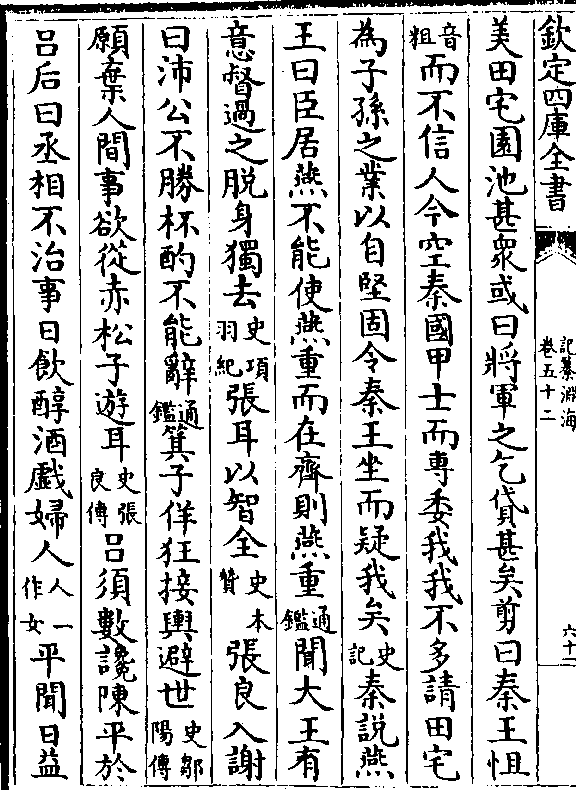 欽定四庫全書
記纂淵海
卷五十二
六十二
美田宅園池甚衆或曰將軍之乞貸甚矣剪曰秦王怚
音粗而不信人今空秦國甲士而專委我我不多請田宅
為子孫之業以自堅固令秦王坐而疑我矣史記秦說燕
王曰臣居燕不能使燕重而在齊則燕重通鑑聞大王有
意督過之脫身獨去史項羽紀張耳以智全史本贊張良入謝
曰沛公不勝杯酌不能辭通鑑箕子佯狂接輿避世史鄒陽傳
願棄人間事欲從赤松子遊耳史張良傳吕須數讒陳平於
吕后曰丞相不治事日飲醇酒戲婦人人一作女平聞日益